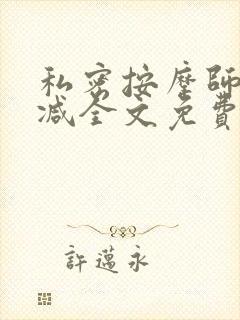 私密按摩師
减全文免費
許邁永